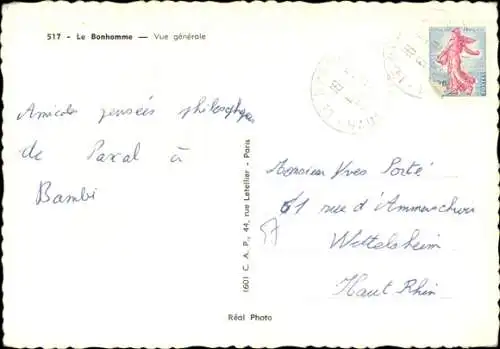 517 - Le Bonhomme — Vue générale
Amicales pensées philosophiques
de Pascal à
Bambi
(60) C. A. P., 44, rue Letellier - Paris
Monsieur Yves Porté
61 rue d'Ammerschwer
57
Wittelsheim
Haut Rhin
Réal Photo